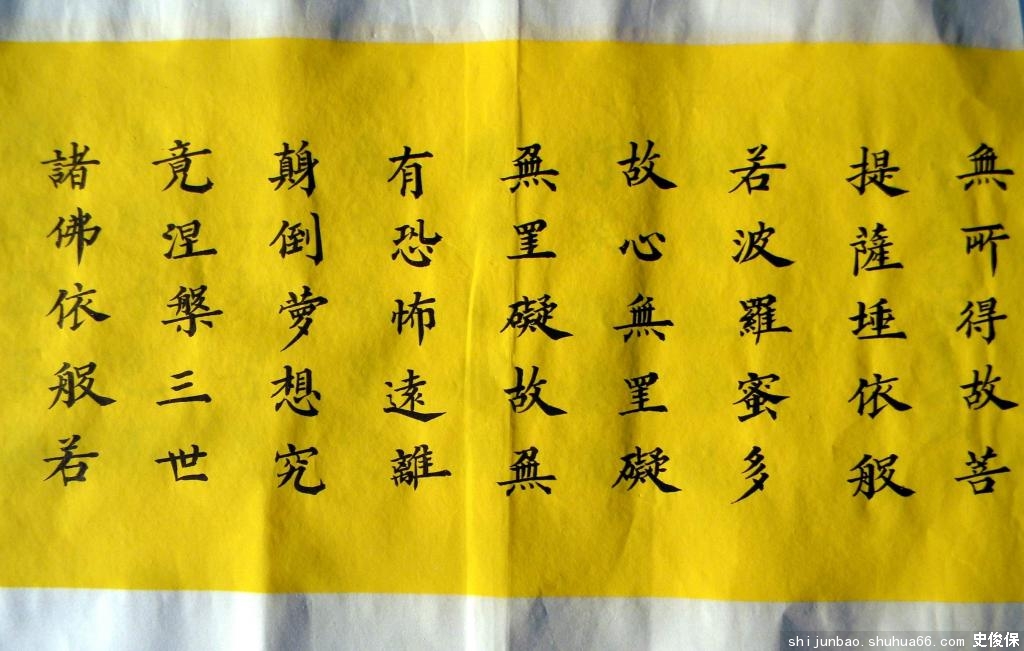 無所得故菩
提薩埵依般
若波羅蜜多
故心無罣礙
無罣礙故無
有恐怖遠離
顛倒夢想究
竟涅槃三世
諸佛依般若
shijunbao.shuhua66.com 史俊保